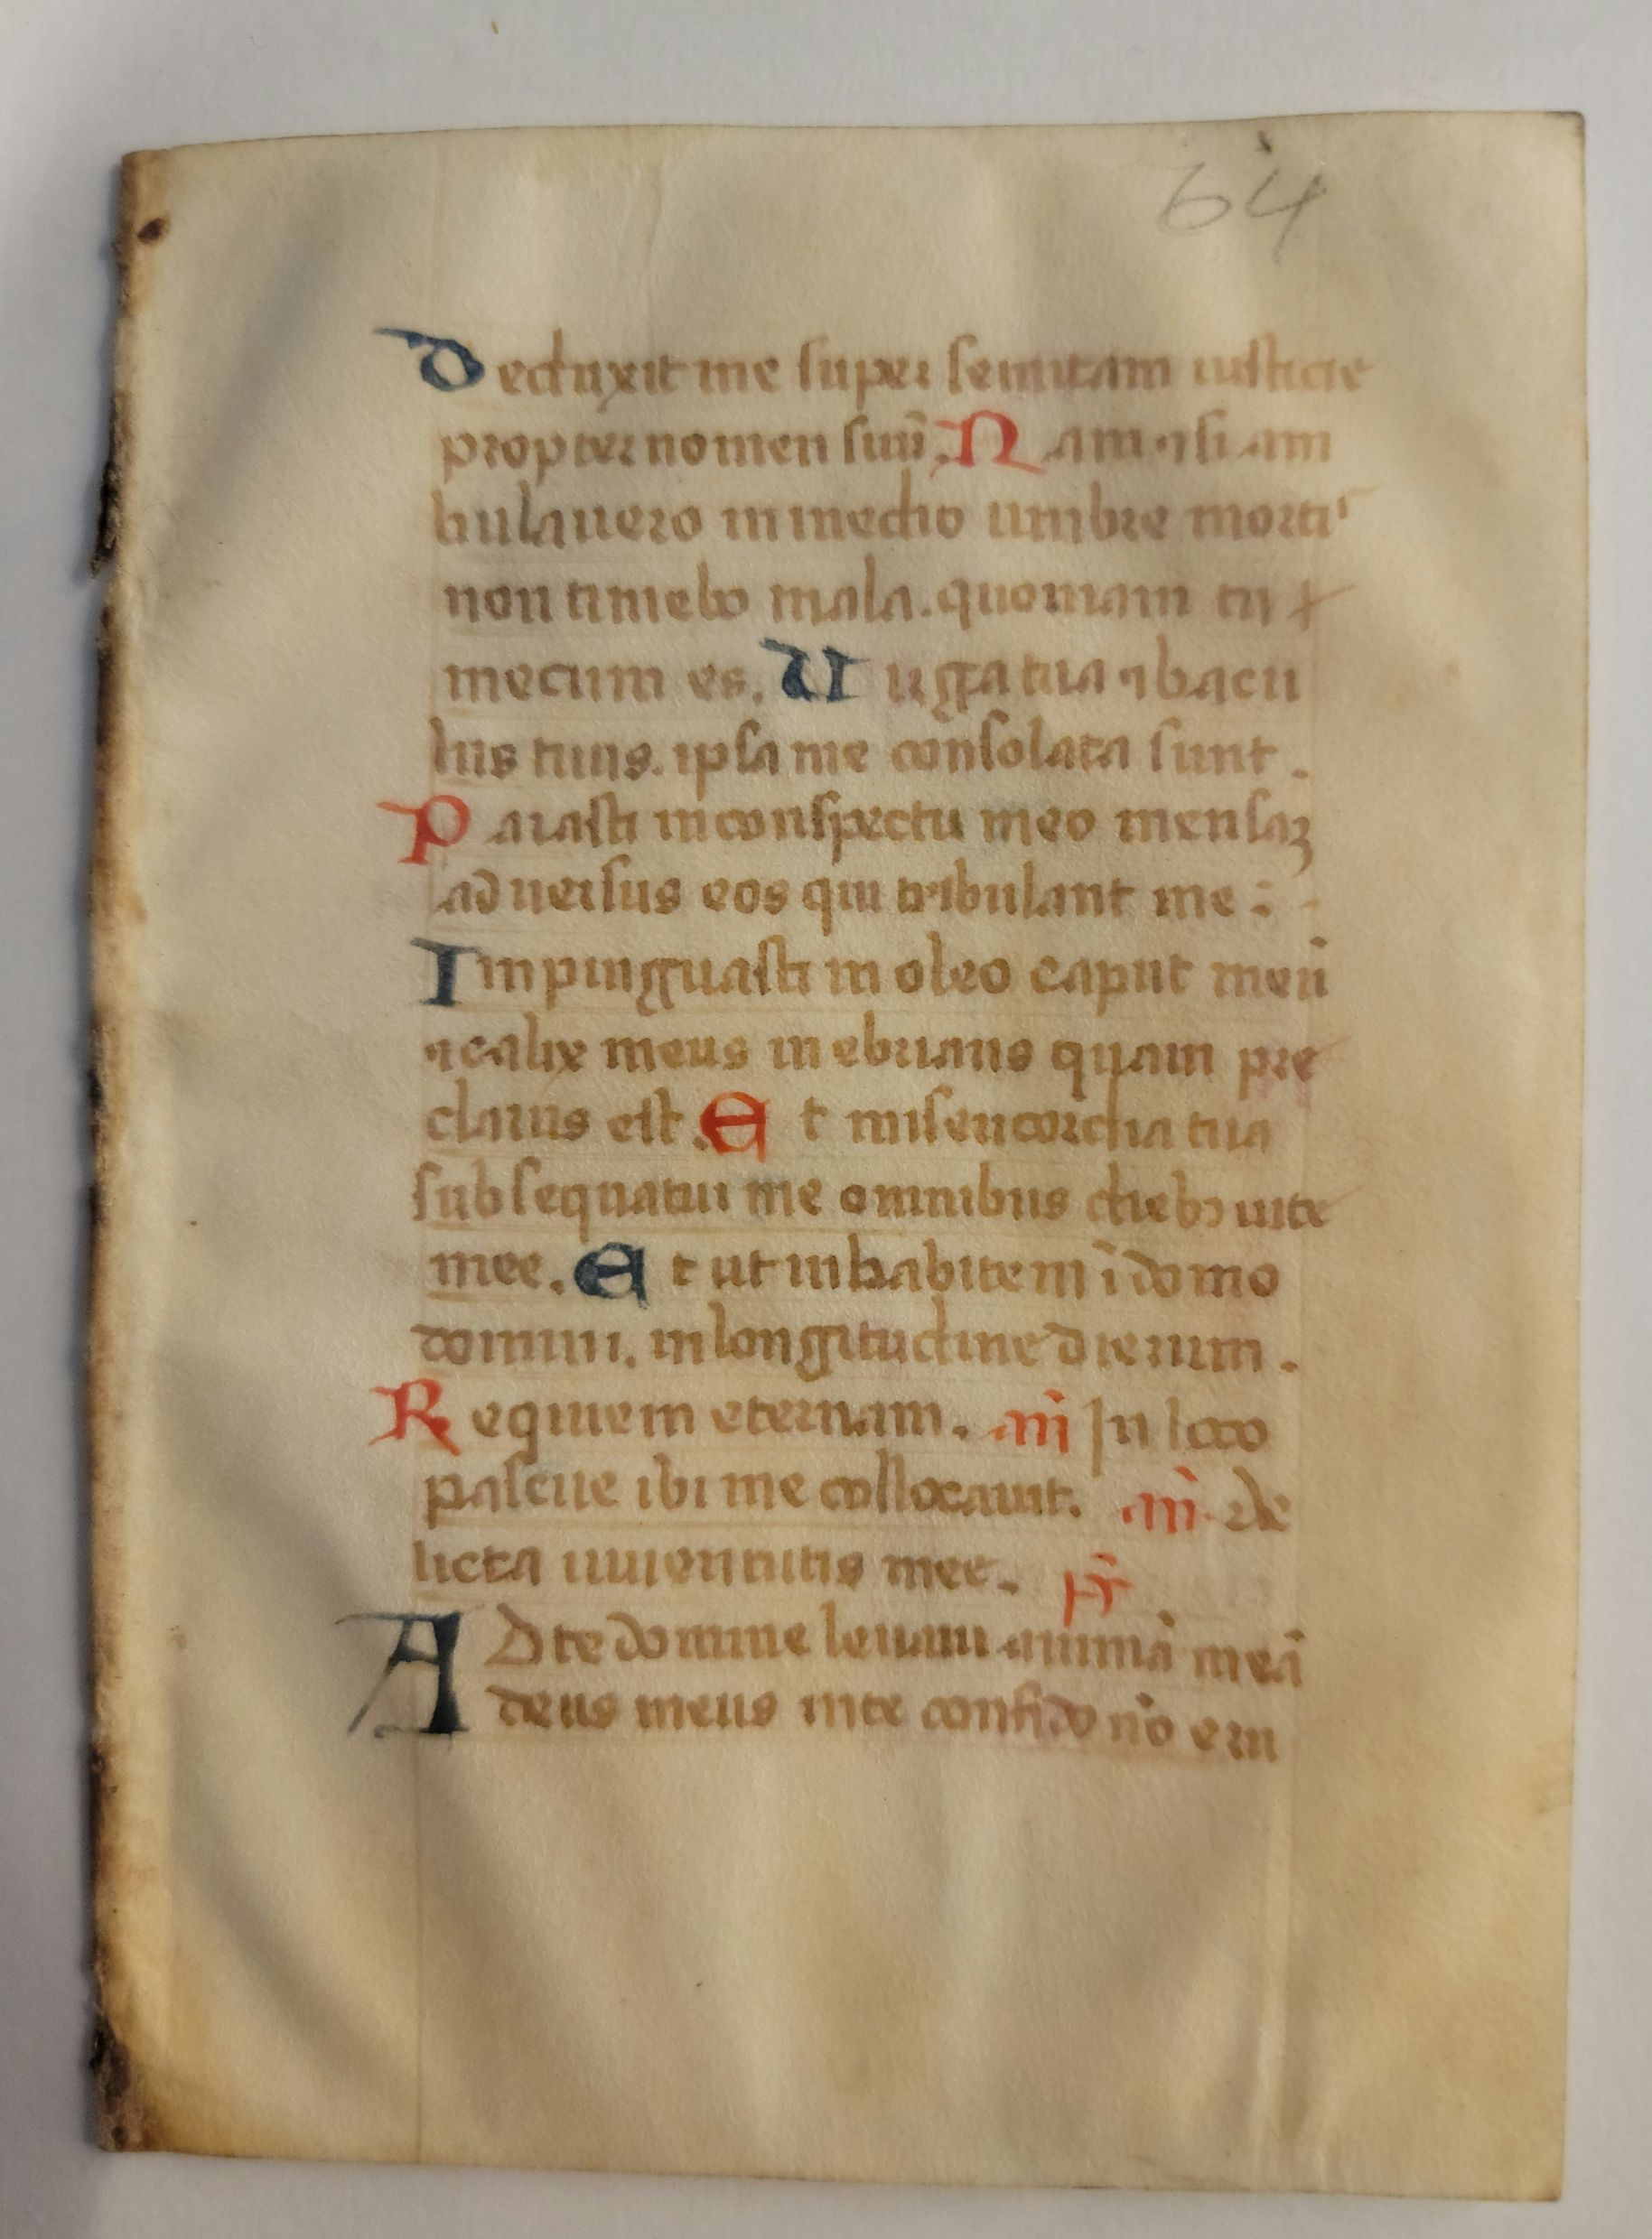 64
Deduxit me super semitam iusticie
propter nomen suū. Nam ⁊ si am
bulauero in medio umbre mortiˢ
non timebo mala. quoniam tu
mecum es. Uirga tua ⁊ bacu
lus tuus. ipsa me consolata sunt.
Parasti in conspectu meo mensaꝫ
aduersus eos qui tribulant me :
Impinguasti in oleo caput meū
⁊ calix meus inebrians quam pre
clarus est. Et misericordia tua
subsequatur me omnibus diebꝫ uite
mee. Et ut inhabitem ī domo
domini. in longitudine dierum.
Requiem eternam. añ In loco
pascue ibi me collocauit. añ. de
licta iuuentutis mee. ps̄
AD te domine leuaui animā meā
deus meus in te confido nō eru